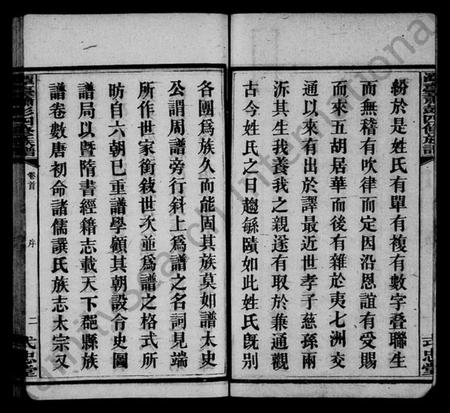 紛於是姓氏有單有複有數字疊聯生
而無稽有吹律而定因沿恩誼有受賜
而來五胡居華而後有雜於夷七洲交
通以來有出於譯最近世孝子慈孫兩
泝其生我養我之親遂有取於兼通觀
古今姓氏之日趨蕃賾如此姓氏旣別
各團爲族久而能固其族莫如譜太史
公謂周譜旁行斜上爲譜之名詞見端
所作世家銜敍世次並爲譜之格式所
昉自六朝已重譜學顧其朝設令史圖
譜局以曁隋書經籍志載天下郡縣族
譜卷數唐初命諸儒譔氏族志太宗又
卷首
序
二
式忠堂